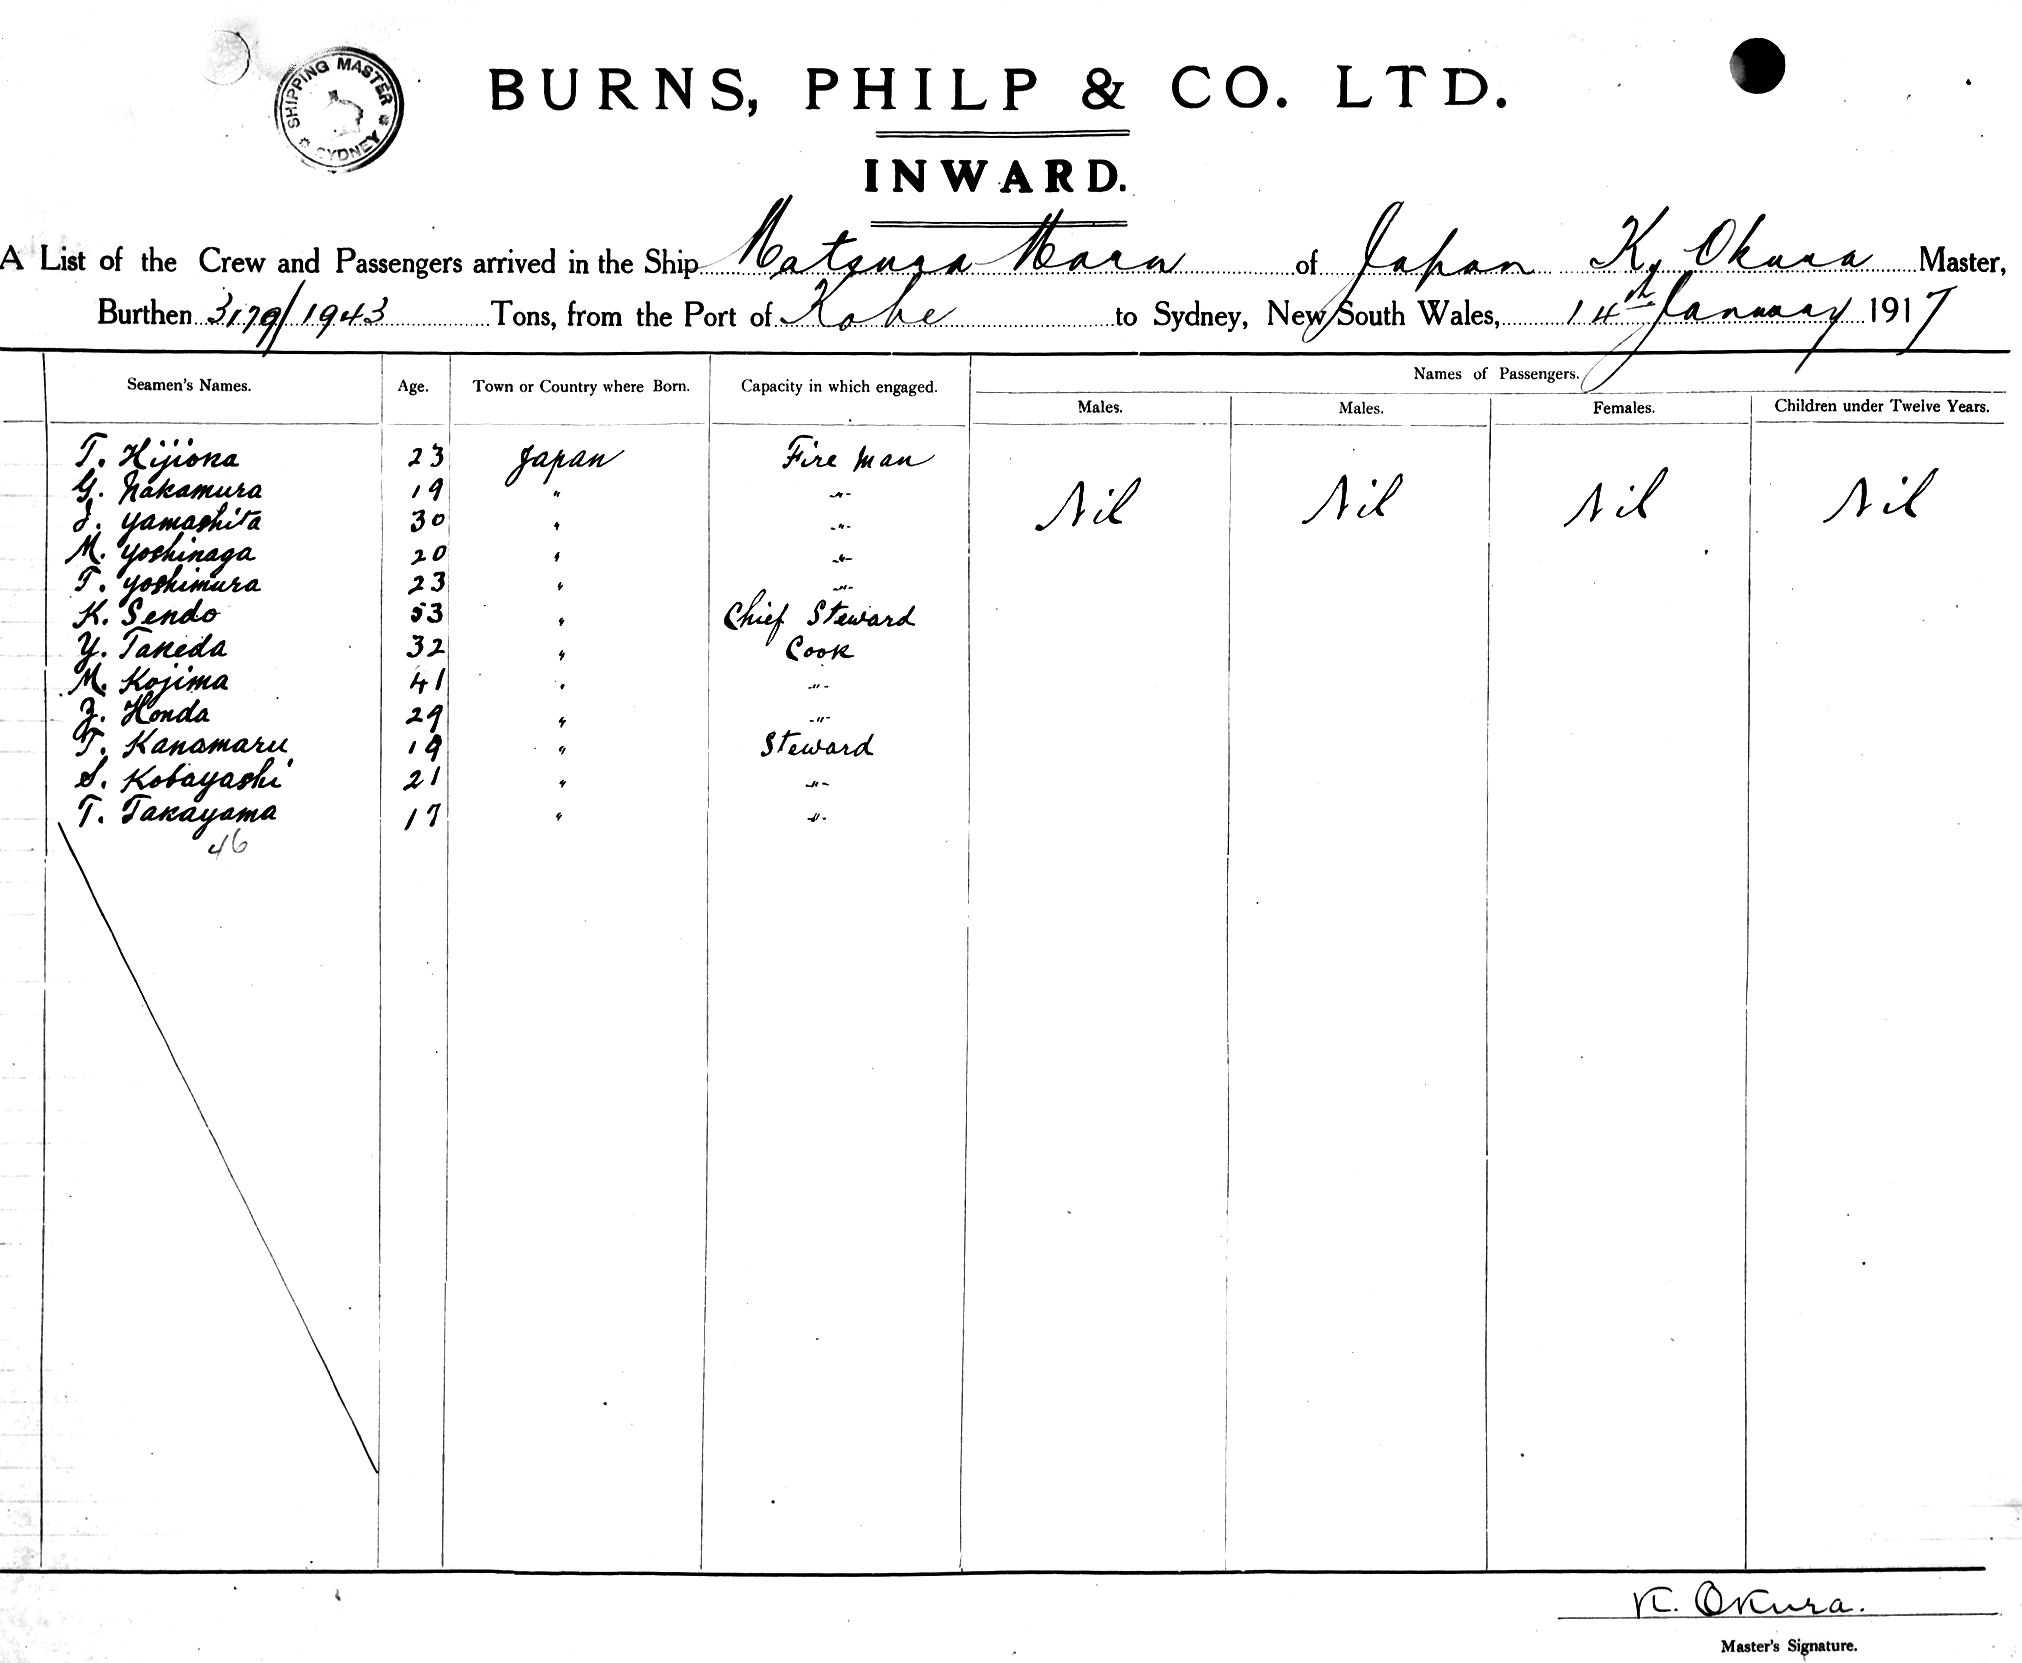 SHIPPING MASTER SYDNEY
BURNS, PHILP & CO. LTD.
INWARD.
A List of the Crew and Passengers arrived in the Ship Matsuura Maru of Japan K. Okura Master,
Burthen 3179/1943 Tons, from the Port of Kobe to Sydney, New South Wales, 14th January 1917
Seamen's Names. Age. Town or Country where Born. Capacity in which engaged. Names of Passengers.
Males. Males. Females. Children under Twelve Years.
T. Hijioka 23 Japan Fire man
G. Nakamura 19 " -"-
Yamashita 30 " -"- Nil Nil Nil Nil
M. Yoshinaga 20 " -"-
T. Yoshimura 23 " -"-
K. Sendo 53 " Chief Steward
Y. Takeda 32 " Cook
M. Kojima 41 " -"-
Z. Honda 29 " -"-
T. Kanamaru 19 " Steward
S. Kobayashi 21 " -"-
T. Takayama 17 " -"-
46
K. Okura.
Master's Signature.